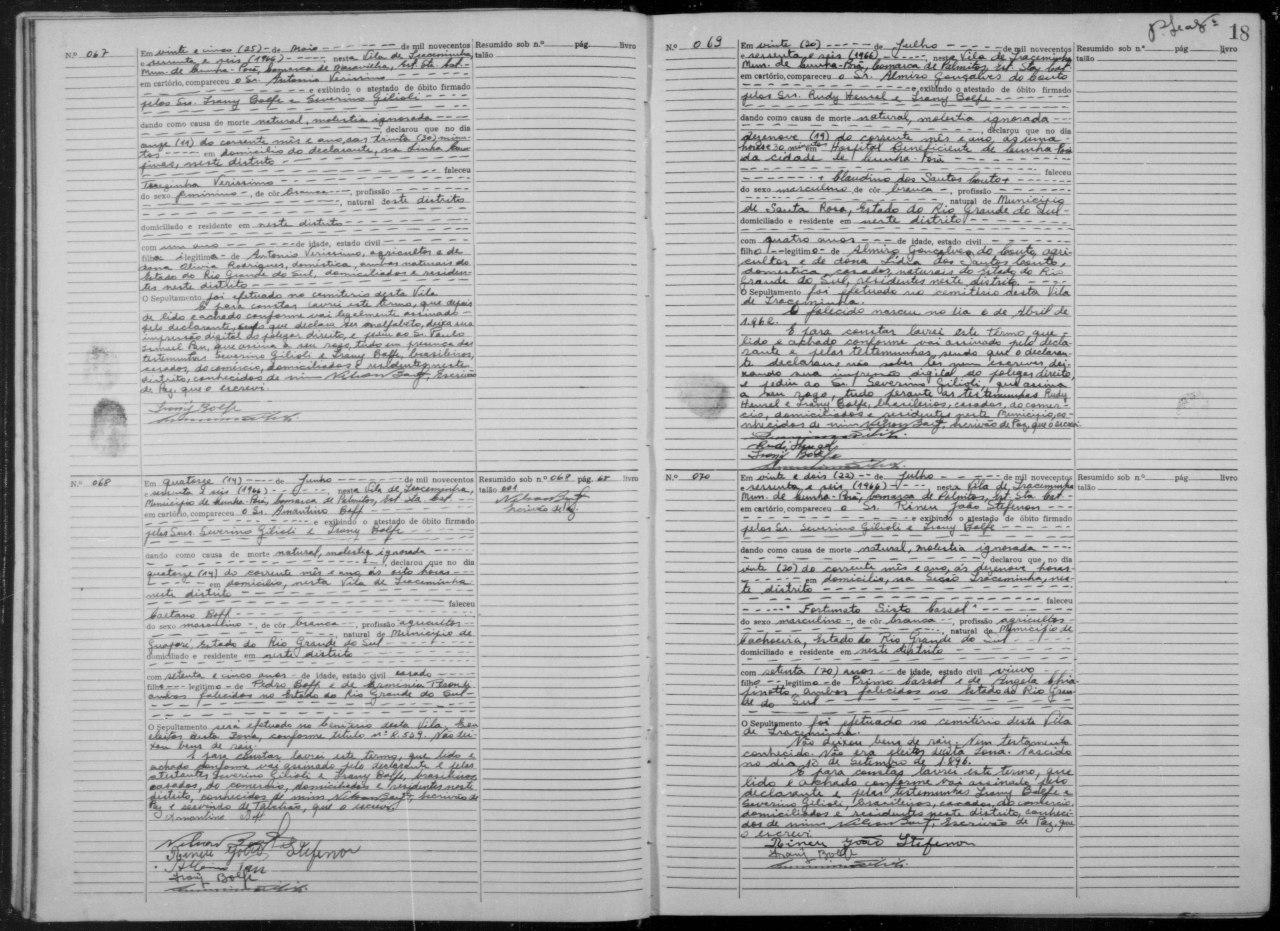 N.º 067
Em vinte e cinco (25) - de Maio - de mil novecentos
e sessenta e seis (1966) - nesta Vila de Iraceminha,
Mun. de Cunha-Porã, Comarca de Maravilha, Est. Sta. Cat.
em cartório, compareceu o Sr. Antonio Verissimo
e exibindo o atestado de óbito firmado
pelos Srs. Irany Bolfe e Severino Gilioli
dando como causa de morte natural, molestia ignorada
declarou que no dia
onze (11) do corrente mês e ano, às trinta (30) minu-
tos - em domicilio do declarante, na Linha
neste distrito
faleceu
Terezinha Verissimo
do sexo feminino -, de côr branca -, profissão
natural deste distrito
domiciliado e residente em neste distrito
com um ano - de idade, estado civil
filha ilegitima - de Antonio Verissimo, agricultor e de
dona Olivia Rodrigues, domestica, ambos naturais do
Estado do Rio Grande do Sul, domiciliados e residen-
tes neste distrito
O Sepultamento foi efetuado no cemiterio desta Vila
E para constar lavrei este termo, que depois
de lido e achado conforme vai legalmente assinado
pelo declarante, que declara ser analfabeto, deixa sua
impressão digital do polegar direito, e pediu ao Sr. Paulo
que assina a seu rogo, tudo em presença das
testemunhas Severino Gilioli e Irany Bolfe, brasileiros,
casados, do comercio, domiciliados e residentes neste
distrito, conhecidos de mim Escrivão
de Paz, que o escrevi.
Irany Bolfe
Resumido sob n.º pág. livro
talão
N.º 068
Em quatorze (14) - de Junho - de mil novecentos
e sessenta e seis (1966) - nesta Vila de Iraceminha,
Municipio de Cunha-Porã, Comarca de Palmitos, Est. Sta. Cat.
em cartório, compareceu o Sr. Amantino Boff
e exibindo o atestado de óbito firmado
pelos Snrs. Severino Gilioli e Irany Bolfe
dando como causa de morte natural, molestia ignorada
declarou que no dia
quatorze (14) do corrente mês e ano às oito horas
em domicilio, nesta Vila de Iraceminha
neste distrito
faleceu
Caetano Boff
do sexo masculino -, de côr branca -, profissão agricultor
natural de Municipio de
Guaporé, Estado do Rio Grande do Sul
domiciliado e residente em neste distrito
com setenta e cinco anos - de idade, estado civil casado
filho - legitimo - de Pedro Boff e de Erminia
ambos falecidos no Estado do Rio Grande do Sul
O Sepultamento será efetuado no Cemitério desta Vila. Era
eleitor desta Zona, conforme titulo nº 8.509. Não dei-
xou bens de raiz.
E para constar lavrei este termo, que lido e
achado conforme vai assinado pelo declarante e pelas
atestantes Severino Gilioli e Irany Bolfe, brasileiros,
casados, do comercio, domiciliados e residentes neste
distrito, conhecidos de mim Escrivão de
Paz e servindo de Tabelião, que o escrevi.
Amantino Boff
Rineu João Stefenon
Irany Bolfe
Resumido sob n.º 068 pág. 68 livro
talão 001
Escrivão de Paz
18
N.º 069
Em vinte (20) - de Julho - de mil novecentos
e sessenta e seis (1966) - nesta Vila de Iraceminha
Mun. de Cunha-Porã, Comarca de Palmitos, Est. Sta. Cat.
em cartório, compareceu o Sr. Almiro Gonçalves do Couto
e exibindo o atestado de óbito firmado
pelos Srs. Rudy Hensel e Irany Bolfe
dando como causa de morte natural, molestia ignorada
declarou que no dia
dezenove (19) do corrente mês e ano, às uma
hora e 30 minutos em Hospital Beneficiente de Cunha Porã
da cidade de Cunha-Porã
faleceu
Claudino dos Santos Couto
do sexo masculino de côr branca -, profissão
natural de Municipio
de Santa Rosa, Estado do Rio Grande do Sul
domiciliado e residente em neste distrito
com quatro anos - de idade, estado civil
filho - legitimo - de Almiro Gonçalves do Couto, agri-
cultor e de dona Lidia dos Santos Couto,
domestica, casados, naturais do Estado do Rio
Grande do Sul, residentes neste distrito
O Sepultamento foi efetuado no cemitério desta Vila
de Iraceminha.
O falecido nasceu no dia 6 de Abril de
1.962.
E para constar lavrei este termo que
lido e achado conforme vai assinado pelo decla-
rante e pelas testemunhas, sendo que o declaran-
te declarou não saber ler nem escrever, dei-
xando sua impressão digital do polegar direito
e pediu ao Sr. Severino Gilioli, que assina
a seu rogo, tudo perante as testemunhas Rudy
Hensel e Irany Bolfe, brasileiros, casados, do comer-
cio, domiciliados e residentes neste Municipio, co-
nhecidos de mim Escrivão de Paz, que o escrevi.
Rudi Hensel
Irany Bolfe
Resumido sob n.º pág. livro
talão
N.º 070
Em vinte e dois (22) - de Julho - de mil novecentos
e sessenta e seis (1966) - nesta Vila de Iraceminha
Mun. de Cunha-Porã, Comarca de Palmitos, Est. Sta. Cat.
em cartório, compareceu o Sr. Rineu João Stefenon
e exibindo o atestado de óbito firmado
pelos Sr. Severino Gilioli e Irany Bolfe
dando como causa de morte natural, molestia ignorada
declarou que no dia
vinte (20) do corrente mês e ano, às dezenove horas
em domicilio, na Seção Iraceminha, nes-
te distrito
faleceu
"Fortunato Sisto Cassol"
do sexo masculino -, de côr branca -, profissão agricultor
natural de Municipio de
Cachoeira, Estado do Rio Grande do Sul
domiciliado e residente em neste distrito
com setenta (70) anos - de idade, estado civil viuvo
filho - legitimo - de Primo Cassol e de Angela
ambos falecidos no Estado do Rio Gran-
de do Sul
O Sepultamento foi efetuado no cemitério desta Vila
de Iraceminha.
Não deixou bens de raiz. Nem testamento
conhecido. Não era eleitor desta Zona. Nascido
no dia 13 de Setembro de 1.896.
E para constar lavrei este termo, que
lido e achado conforme vai assinado pelo
declarante e pelas testemunhas Irany Bolfe e
Severino Gilioli, brasileiros, casados, do comercio,
domiciliados e residentes neste distrito, conheci-
dos de mim Escrivão de Paz, que
o escrevi.
Rineu João Stefenon
Irany Bolfe
Resumido sob n.º pág. livro
talão